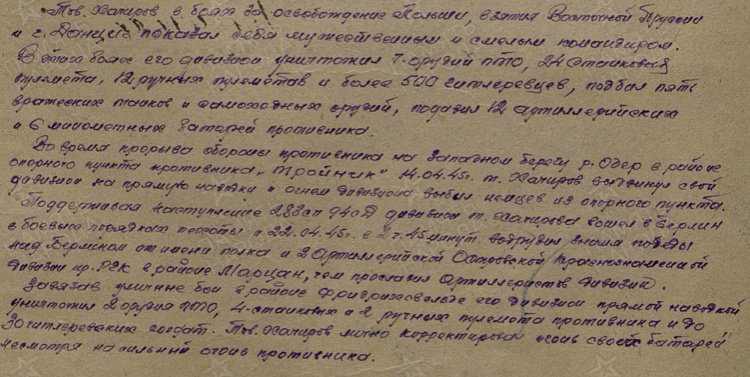 Тов. Хачиров в боях за освобождение Польши, взятия Восточной Пруссии
и г. Данциг показал себя мужественным и смелым командиром.
В этих боях его дивизион уничтожил 7-орудий ПТО, 24 станковых
пулемета, 12 ручных пулеметов и более 500 гитлеровцев, подбил пять
вражеских танков и самоходных орудий, подавил 12 артиллерийских
и 6 минометных батарей противника.
Во время прорыва обороны противника на западном берегу р. Одер в районе
опорного пункта противника „Тройчик" 14.04.45г. т. Хачиров выдвинул свой
дивизион на прямую наводку и огнем дивизиона выбил немцев из опорного пункта.
Поддерживая наступление 283сп 94сд дивизион т. Хачирова вошел в Берлин
в боевых порядках пехоты и 22.04.45г. в 2 ч. 45 минут водрузил знамя победы
над Берлином от имени полка и 2 Артиллерийской Островской Краснознаменной
дивизии пр. РГК в районе Марцан, чем прославил артиллеристов дивизии.
Завязав уличные бои в районе Фридрихсфельде его дивизион прямой наводкой
уничтожил 2 орудия ПТО, 4-станковых и 2 ручных пулемета противника и до
30 гитлеровских солдат. Тов. Хачиров лично корректировал огонь своей батарей
несмотря на сильный огонь противника.